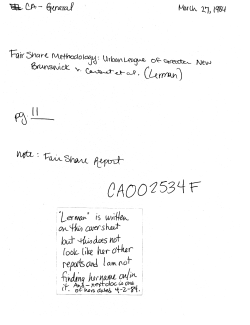 CA - General
March 27, 1984
Fair Share Methodology: Urban League of Greater New
Brunswick v. Carteret et al. (Lerman)
pg 11
note: Fair Share Report
CA002534F
"Lerman" is written
on this cover sheet
but this does not
look like her other
reports and I am not
finding her name on/in
it. And - next doc is one
of hers dated 4-2-84.